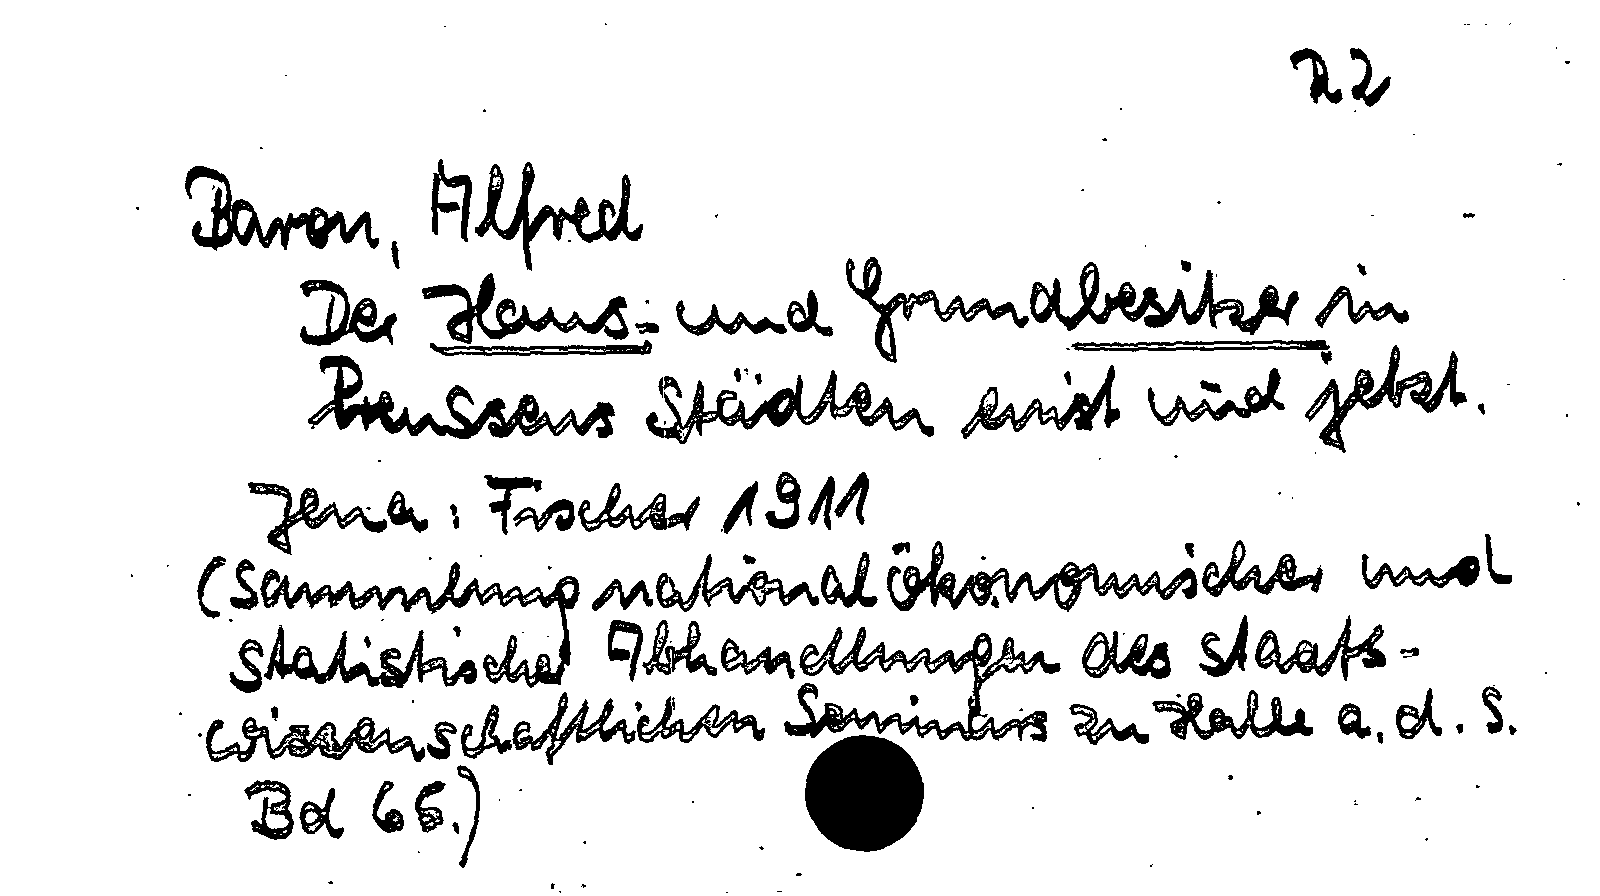 22
Baron, Alfred
Der Haus- und Grundbesitzer in
Preussens Städten einst und jetzt.
Jena: Fischer 1911
(Sammlung nationalökonomischer und
statistischer Abhandlungen des staats-
wissenschaftlichen Seminars zu Halle a. d. S.
Bd 65.)